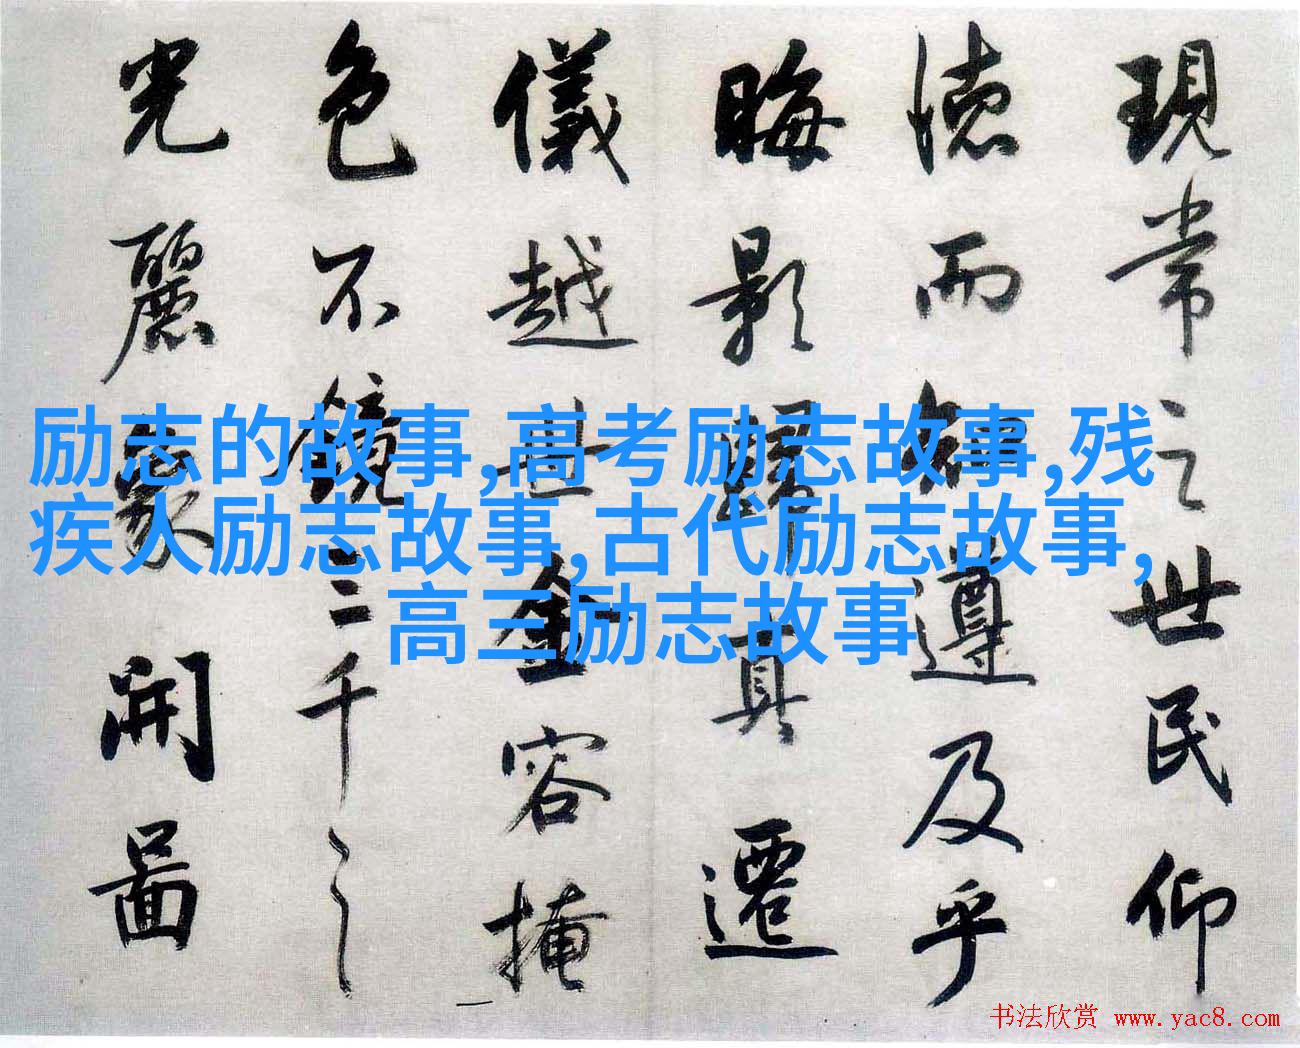 現常之世民仰
德而知遵及乎
晦影歸真遷
儀越世金容掩
色不鏡三千之
光麗象開圖
励志的故事,高考励志故事,残
疾人励志故事,古代励志故事,
高三励志故事
书法欣赏 www.yac8.com